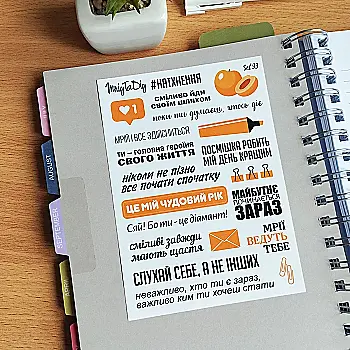 #НАТХНЕННЯ
Set 93
1
СМІЛИВО ЙДИ
СВОЇМ ШЛЯХОМ
поки ти думаєш, хтось діє
МРІЙ І ВСЕ ЗДІЙСНИТЬСЯ
ТИ – ГОЛОВНА ГЕРОЇНЯ
СВОГО ЖИТТЯ
ПОСМІШКА РОБИТЬ
МІЙ ДЕНЬ КРАЩИМ
ніколи не пізно
все почати спочатку
ЦЕ МІЙ ЧУДОВИЙ РІК
МАЙБУТНЄ
ПОЧИНАЄТЬСЯ
ЗАРАЗ
Сяй! Бо ти - це діамант!
сміливі завжди
мають щастя
МРІЇ
ВЕДУТЬ
ТЕБЕ
СЛУХАЙ СЕБЕ, А НЕ ІНШИХ
неважливо, хто ти є зараз,
важливо ким ти хочеш стати
AUGUST
SEPTEMBER